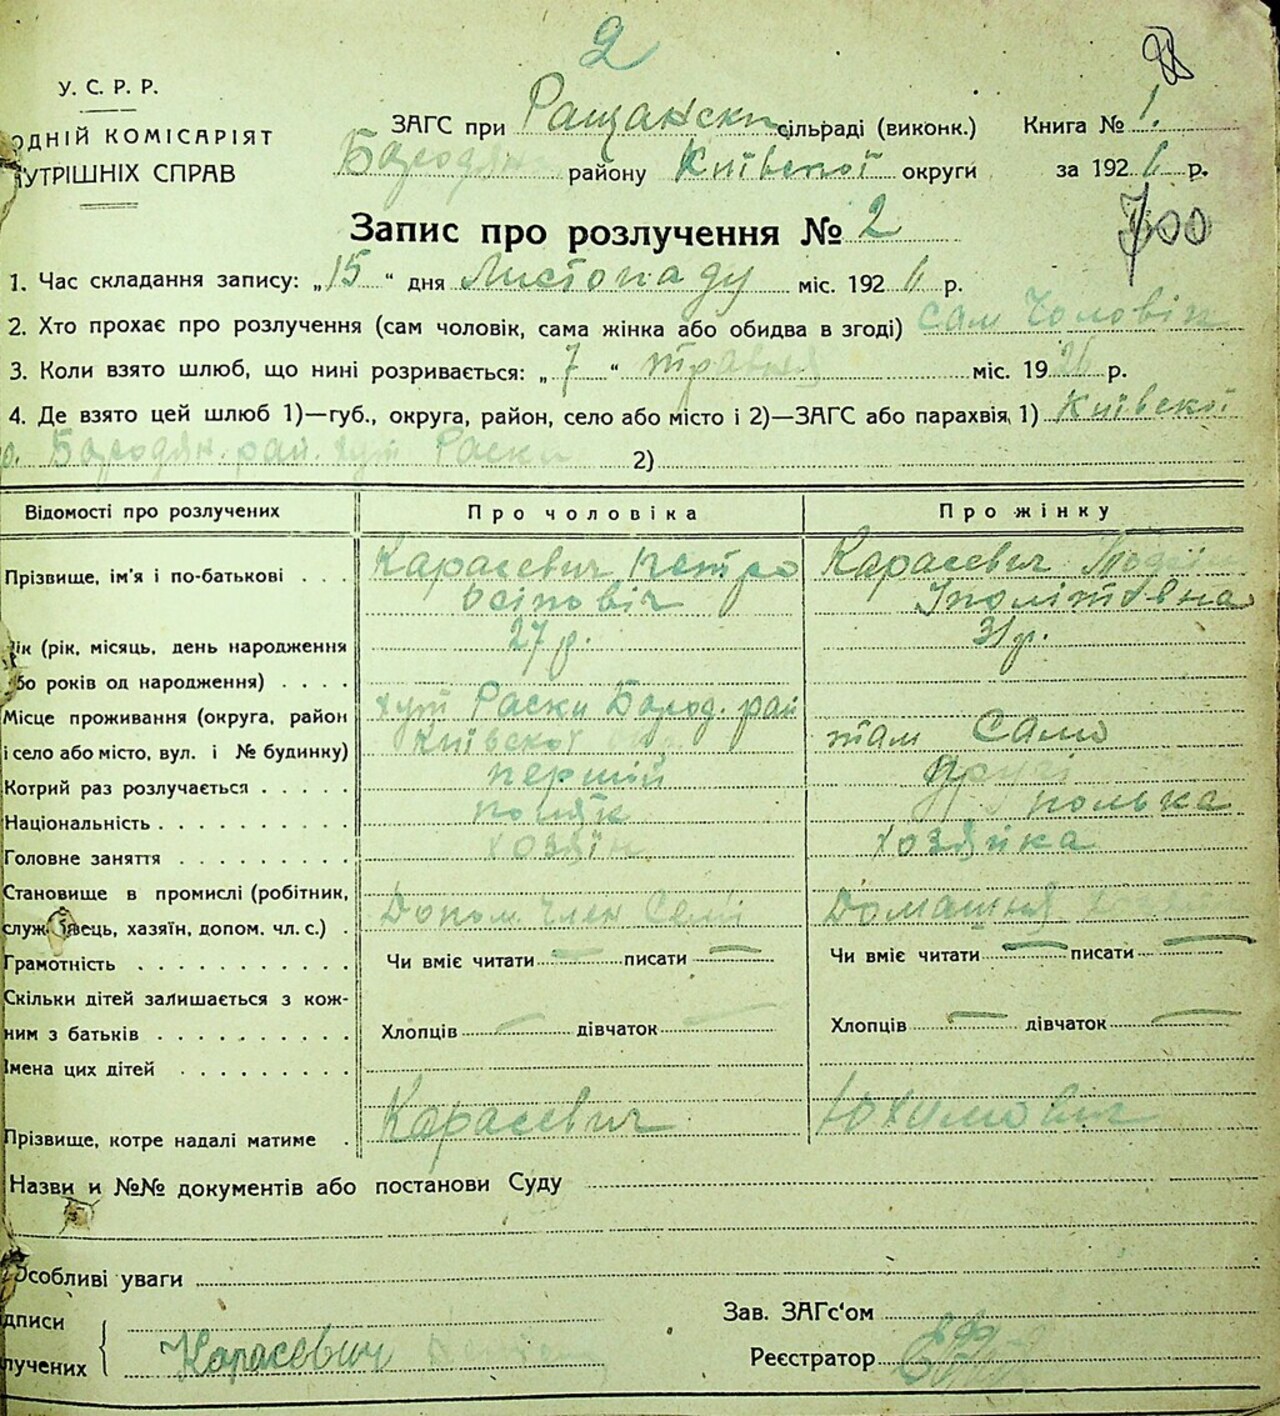 2
У. С. Р. Р.
ОДНІЙ КОМІСАРІЯТ
УТРІШНІХ СПРАВ
ЗАГС при Ращански сільраді (виконк.) Книга № 1.
Бородян району Київської округи за 192 6 р.
700
Запис про розлучення № 2
1. Час складання запису: „15“ дня Листопаду міс. 192 6 р.
2. Хто прохає про розлучення (сам чоловік, сама жінка або обидва в згоді) Сам Чоловік
3. Коли взято шлюб, що нині розривається: „7“ травня міс. 19 26 р.
4. Де взято цей шлюб 1)—губ., округа, район, село або місто і 2)—ЗАГС або парахвія, 1) Київської
о. Бородян. рай. хут Раски 2)
Відомості про розлучених Про чоловіка Про жінку
Прізвище, ім'я і по-батькові . . . Карасевич Петро Карасевич
Осіповіч Іполітовна
ік (рік, місяць, день народження 27 р. 31 р.
бо років од народження) . . . .
Місце проживання (округа, район хут Раски Бород. рай
і село або місто, вул. і № будинку) Київської там Само
Котрий раз розлучається . . . . . першій другі
Національність . . . . . . . . . . поляк полька
Головне заняття . . . . . . . . . хозяїн хозяйка
Становище в промислі (робітник,
службовець, хазяїн, допом. чл. с.) . Допом. Член Семї Домашня
Грамотність . . . . . . . . . . . Чи вміє читати — писати — Чи вміє читати — писати —
Скільки дітей залишається з кож-
ним з батьків . . . . . . . . . . Хлопців — дівчаток — Хлопців — дівчаток —
Імена цих дітей . . . . . . . . .
Прізвище, котре надалі матиме . Карасевич Юхимовіч
Назви и №№ документів або постанови Суду
Особливі уваги
дписи Зав. ЗАГс'ом
лучених Карасевич Реєстратор